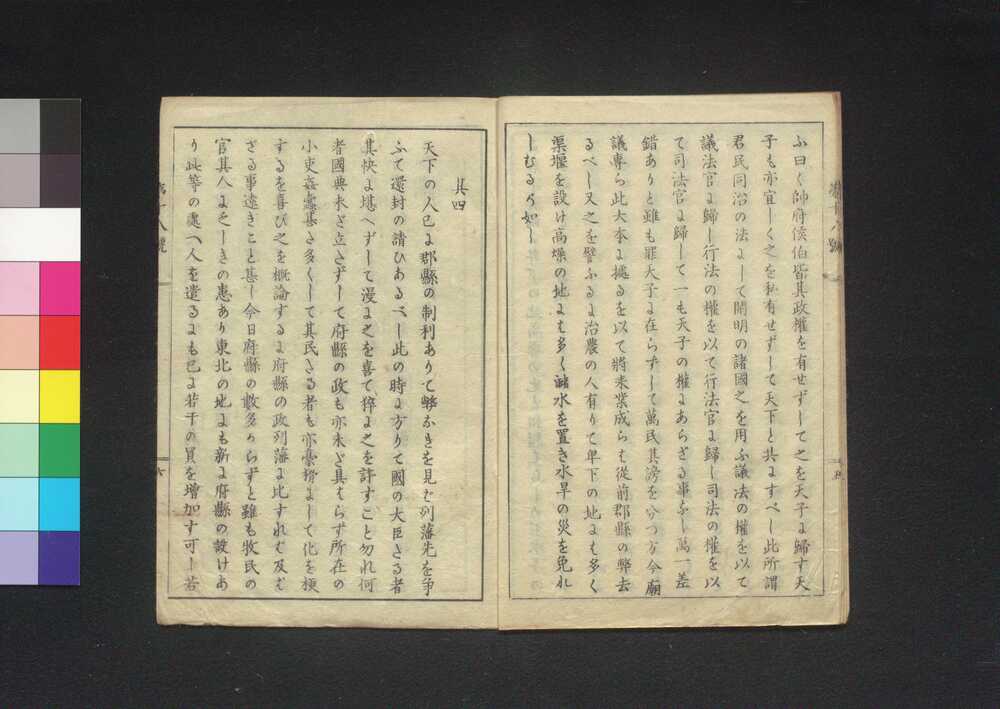 ふ曰く帥府侯伯皆其政權を有せずして之を天子に歸す天
子も亦宜しく之を私有せずして天下と共にすべし此所謂
君民同治の法にして開明の諸國之を用ふ議法の權を以て
議法官に歸し行法の權を以て行法官に歸し司法の權を以
て司法官に歸して一も天子の權にあらざる事なし萬一差
錯ありと雖も罪天子に在らずして萬民其謗を分つ方今廟
議專ら此大本に據るを以て將来業成らば從前郡縣の弊去
るべし又之を譬ふるに治農の人有りて卑下の地にも多く
渠堰を設け高燥の地にも多く瀦水を置き水旱の災を免れ
しむるが如し
其四
天下の人已に郡縣の制利ありて弊なきを見ば列藩先を爭
ふて還封の請ひあるべし此の時に方りて國の大臣たる者
其快に堪へずして漫に之を喜て猝に之を許すこと勿れ何
者國典未だ立たずして府縣の政も亦未だ具はらず所在の
小吏姦蠹甚だ多くして其民たる者も亦豪猾にして化を梗
するを喜び之を概論するに府縣の政列藩に比すれば及ば
ざる事遠きこと甚し今日府縣の數多からずと雖も牧民の
官其人に乏しきの患あり東北の地にも新に府縣の設けあ
り此等の處へ人を遣るにも已に若干の員を增加す可し若
第十八號
五
第十八號
六